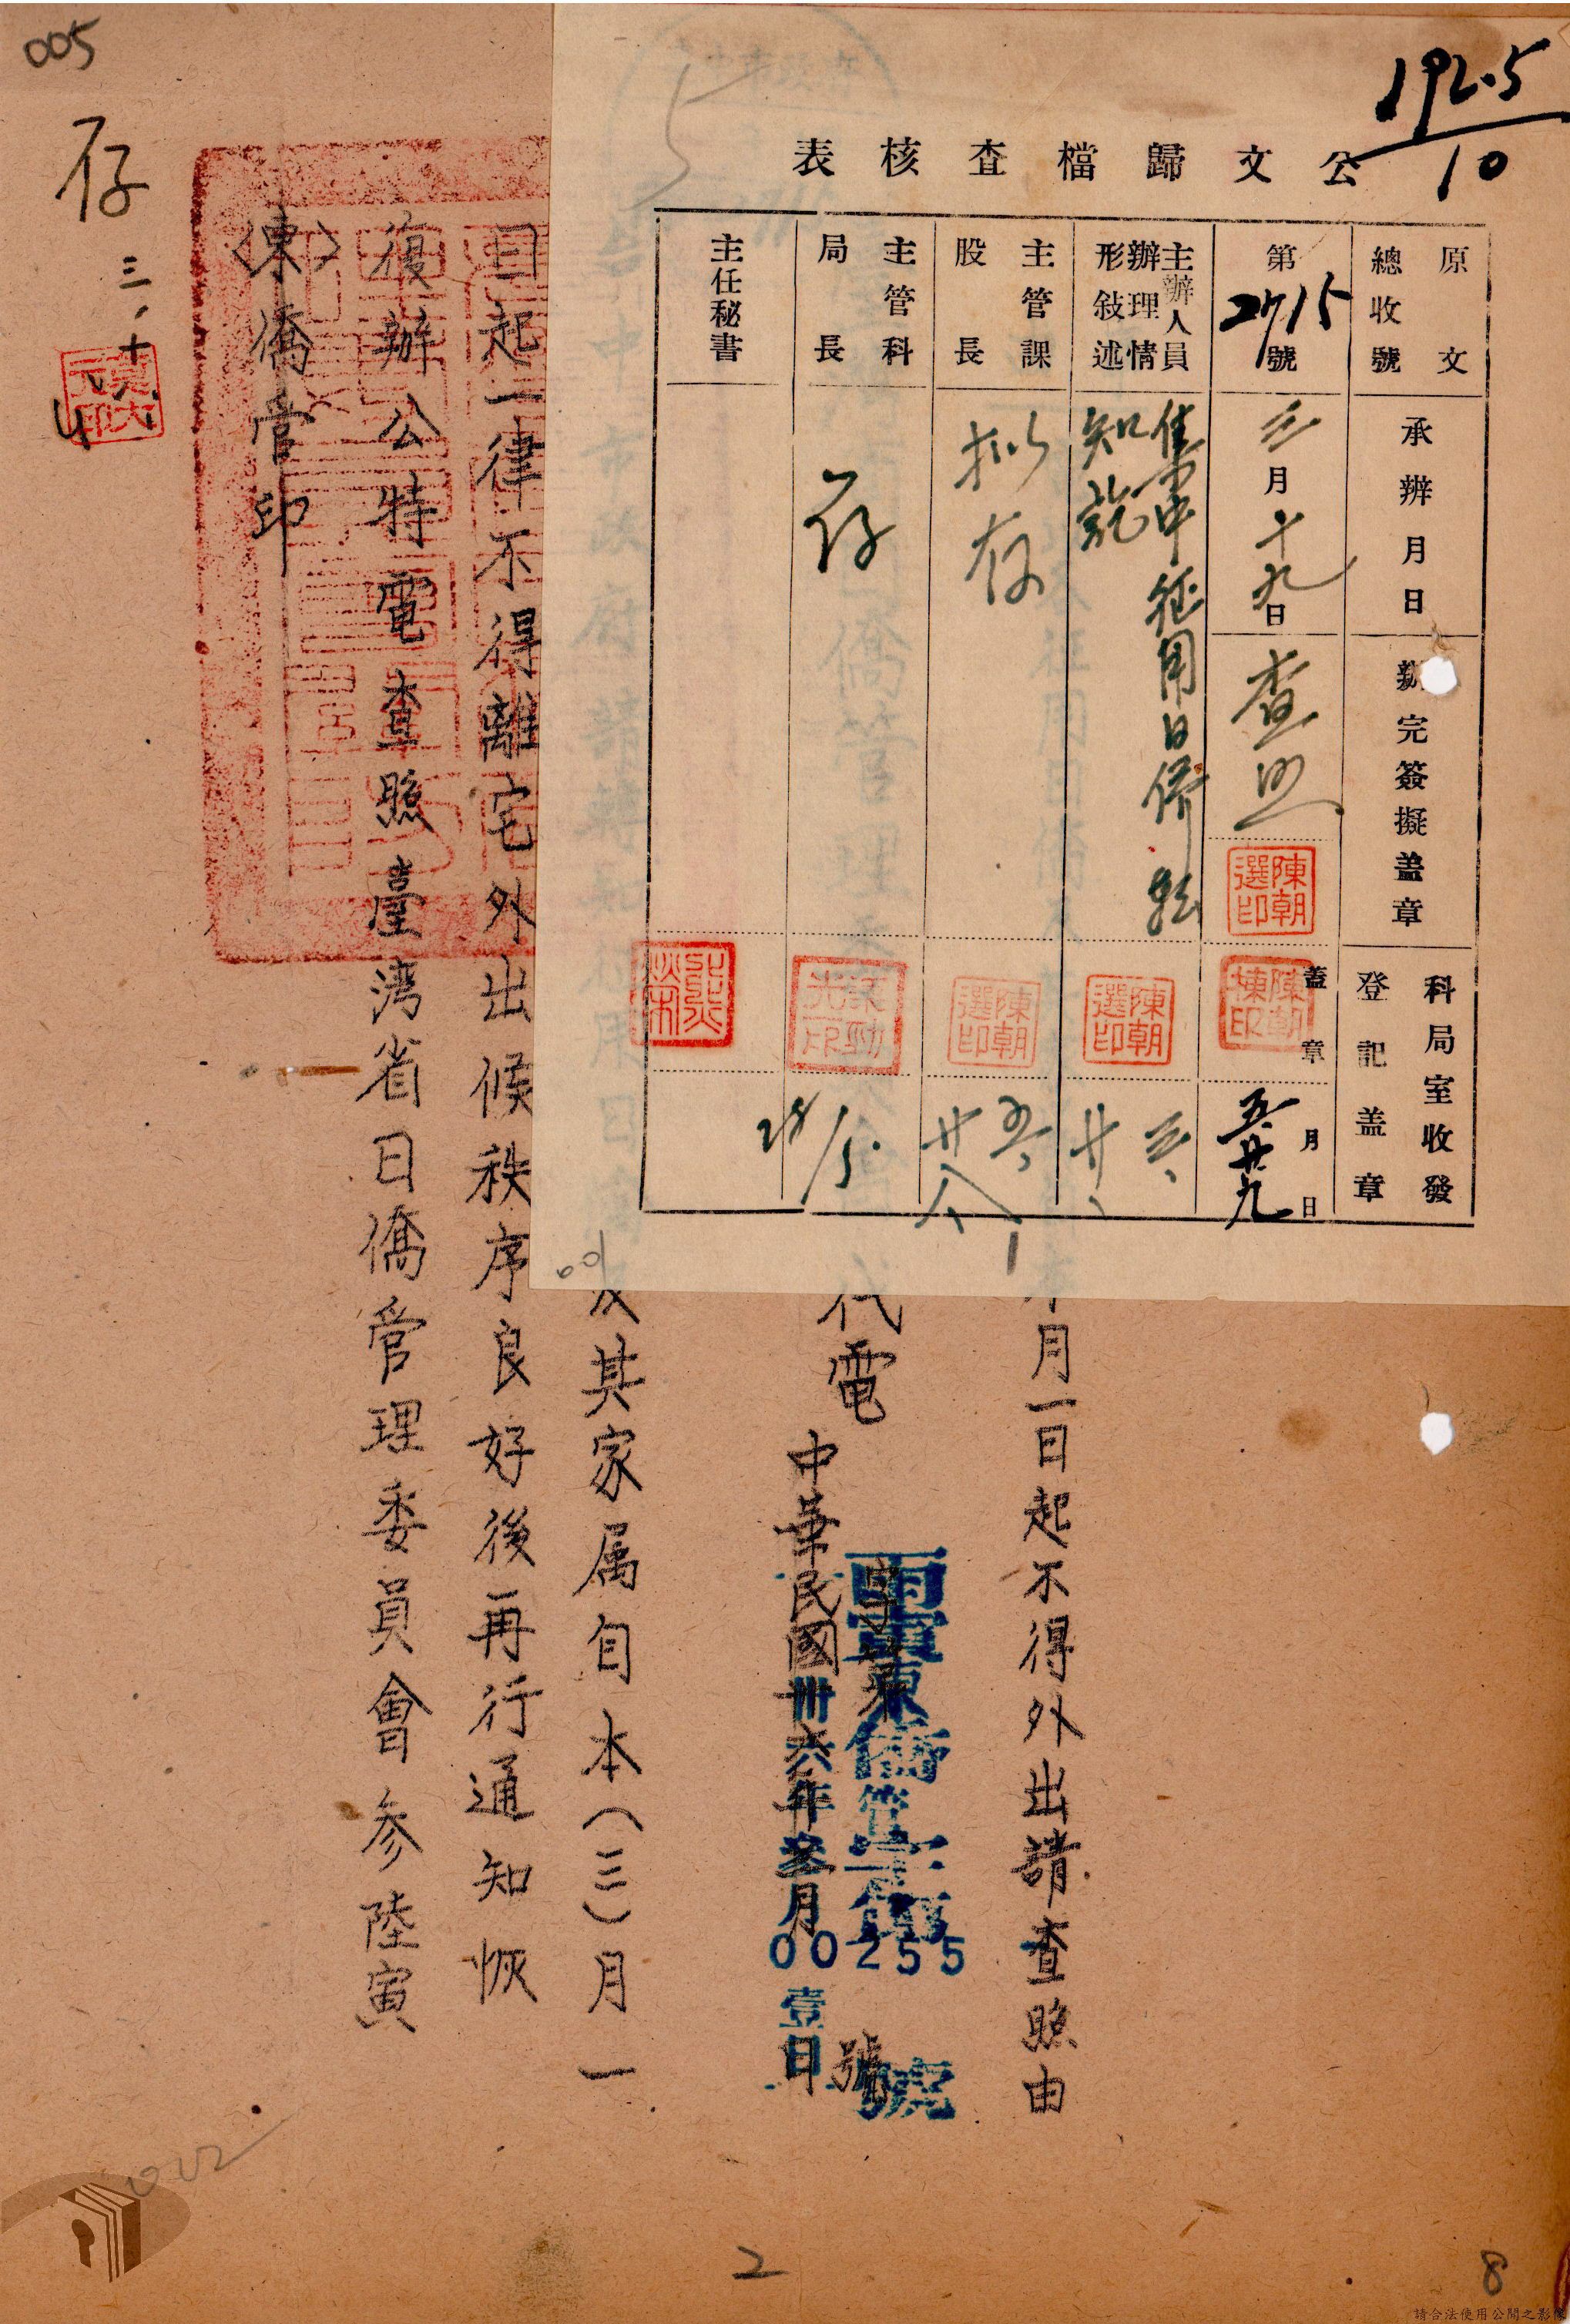 005
192.5
10
5
公文歸檔查核表
原文總收號
承辦月日
辦完簽擬蓋章
科局室收發登記蓋章
第2715號
三月十九日
查照
陳朝選印
蓋章
五廿九
月日
主辦人員辦理情形敍述
集中征用日僑
知訖
陳朝選印
三、廿
主管課股長
拟存
陳朝選印
五、廿八
主管科局長
存
28/5.
主任秘書
001
月一日起不得外出請查照由
代電
東僑管字第00255號
中華民國卅六年叁月壹日
及其家属自本(三)月一
日起一律不得離宅外出候秩序良好後再行通知恢
復辦公特電查照臺湾省日僑管理委員會参陸寅
(東)僑管印
存
三、十
002
2
8
請合法使用公開之影像